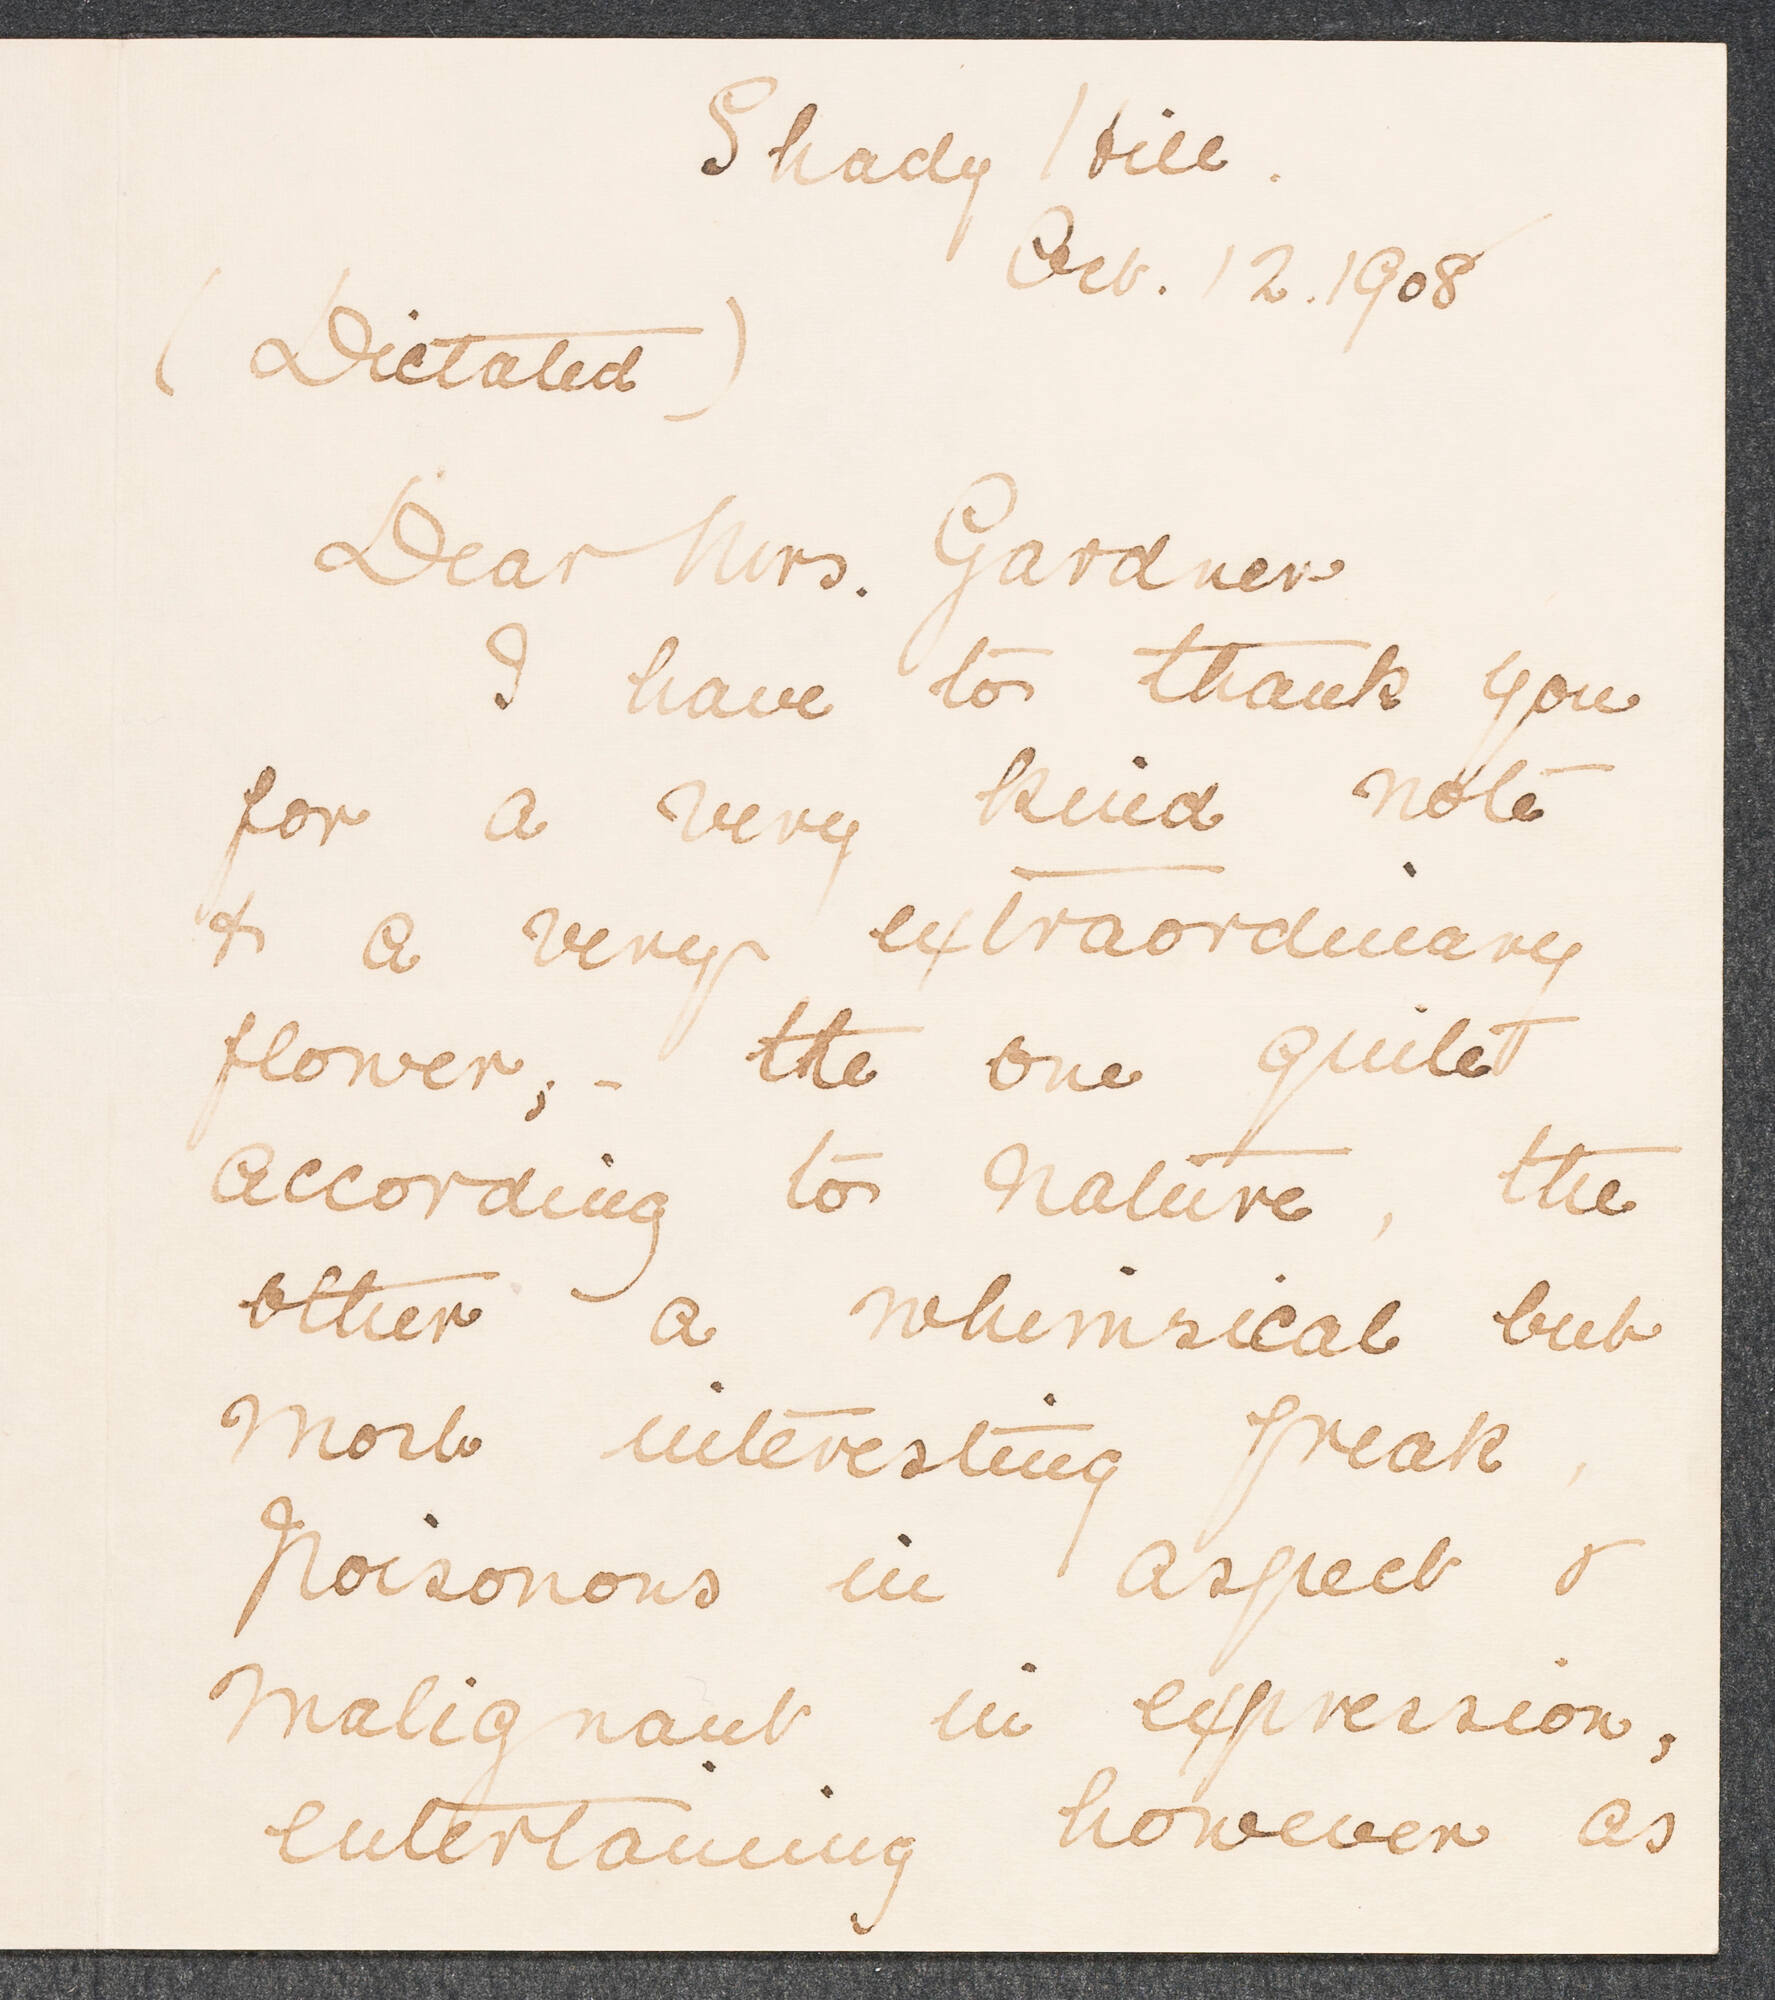 Shady Hill.
Oct. 12. 1908
(Dictated)
Dear Mrs. Gardner
I have to thank you
for a very kind note
& a very extraordinary
flower; - the one quite
according to nature, the
other a whimsical but
most interesting freak,
Poisonous in aspect &
malignant in expression,
entertaining however as